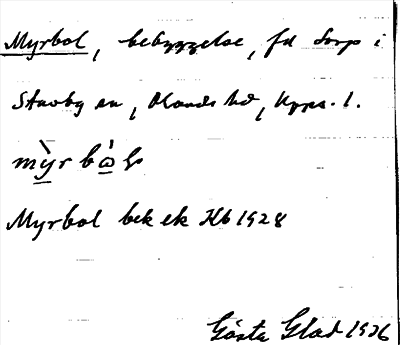 Myrbol, bebyggelse, fd torp i
Stavby sn, Olands hd, Upps. l.
Myrbol bek ek Kb 1928
Gösta Glad 1926